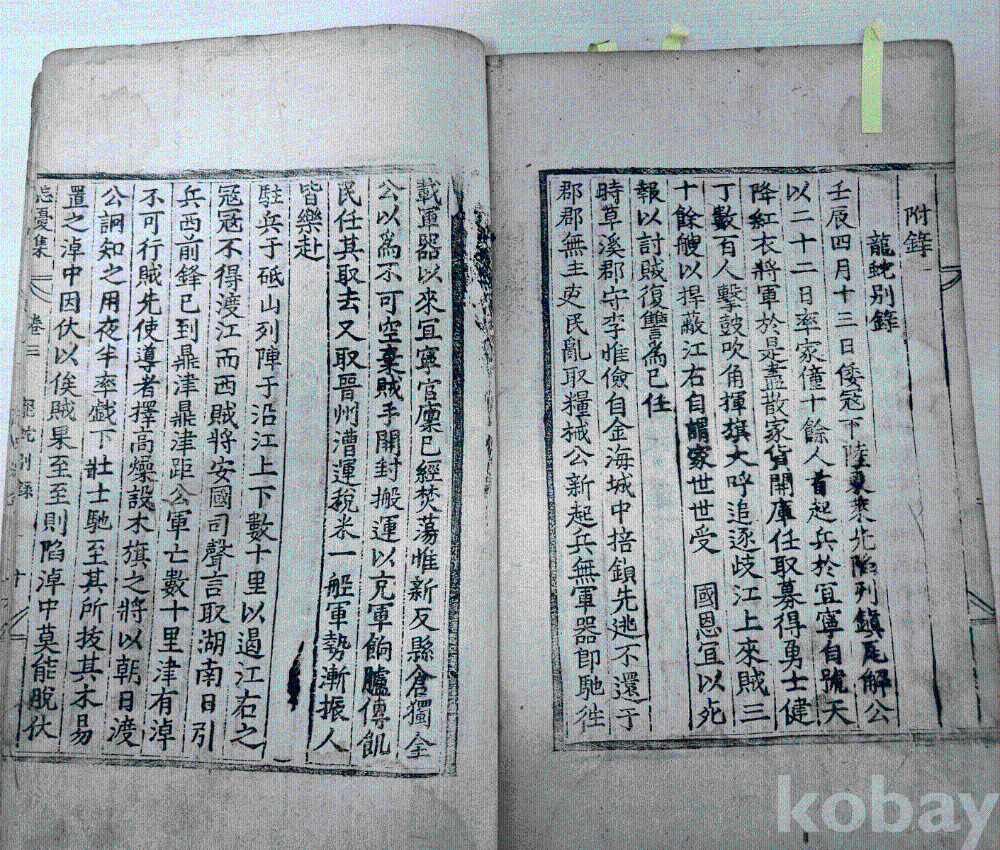 附錄
龍蛇別錄
壬辰四月十三日倭冦下陸乘東北陷列鎮瓦解公
以二十二日率家僮十餘人首起兵於宜寧自號天
降紅衣將軍於是盡散家貨開庫任取募得勇士健
丁數百人擊鼓吹角揮旗大呼追逐歧江上來賊三
十餘艘以捍蔽江右自謂家世世受 國恩宜以死
報以討賊復讐為己任
時草溪郡守李惟儉自金海城中掊鎖先逃不還于
郡郡無主吏民亂取糧械公新起兵無軍器即馳徃
載軍器以來宜寧官廩已經焚蕩惟新反縣倉獨全
公以為不可空棄賊手開封搬運以充軍餉臚傳飢
民任其取去又取晉州漕運稅米一艇軍勢漸振人
皆樂赴
駐兵于砥山列陣于沿江上下數十里以遏江右之
冦冦不得渡江而西賊將安國司聲言取湖南日引
兵西前鋒已到鼎津鼎津距公軍亡數十里津有淖
不可行賊先使導者擇高燥設木旗之將以朝日渡
公詗知之用夜半率戲下壯士馳至其所技其木易
置之淖中因伏以俟賊果至至則陷淖中莫能脫伏
忘憂集 卷三 龍蛇別錄 十
kobay